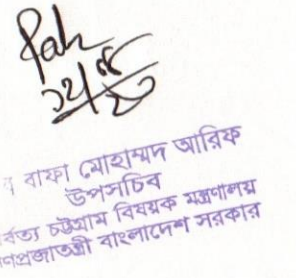 বাফা মোহাম্মদ আরিফ
উপসচিব
র্বত্য চট্টগ্রাম বিষয়ক মন্ত্রণালয়
ণপ্রজাতন্ত্রী বাংলাদেশ সরকার